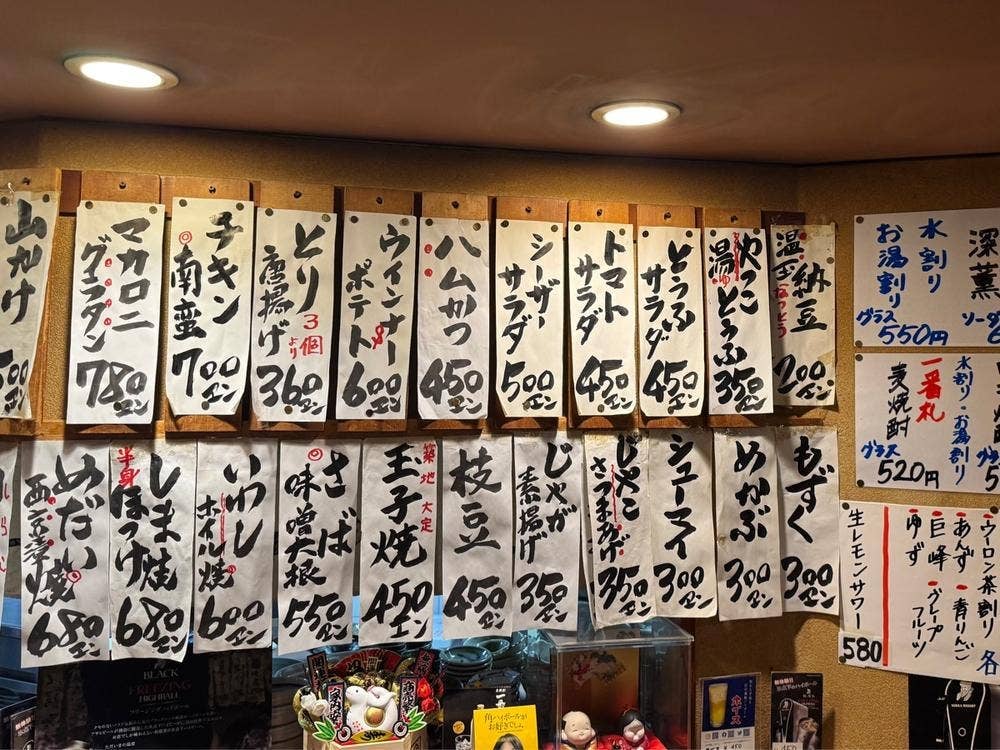 納豆
温玉なっとう
200エン
やっこ
湯どうふ
350エン
とうふ
サラダ
450エン
トマト
サラダ
450エン
シーザー
サラダ
500エン
ハムかつ
450エン
ウインナー
ポテト
600エン
とり
唐揚げ
3個
より
360エン
チキン
南蛮
700エン
マカロニ
グラタン
780エン
山かけ
もずく
300エン
めかぶ
300エン
シューマイ
300エン
じゃこ
さつまあげ
350エン
じゃが
素揚げ
450エン
枝豆
450エン
築地大定
玉子焼
450エン
さば
味噌大根
550エン
いわし
ホイル焼
600エン
しま
半身
ほっけ焼
680エン
めだい
西京焼
680エン
深薫
水割り
お湯割り
グラス
550円
水割り・お湯割り
一番札
麦焼酎
グラス
520円
ウーロン茶割り
各
・あんず
・青りんご
・巨峰
・グレープフルーツ
・ゆず
生レモンサワー
580
BLACK
FREEZING
HIGHBALL
角ハイボールが
お好きでしょ。